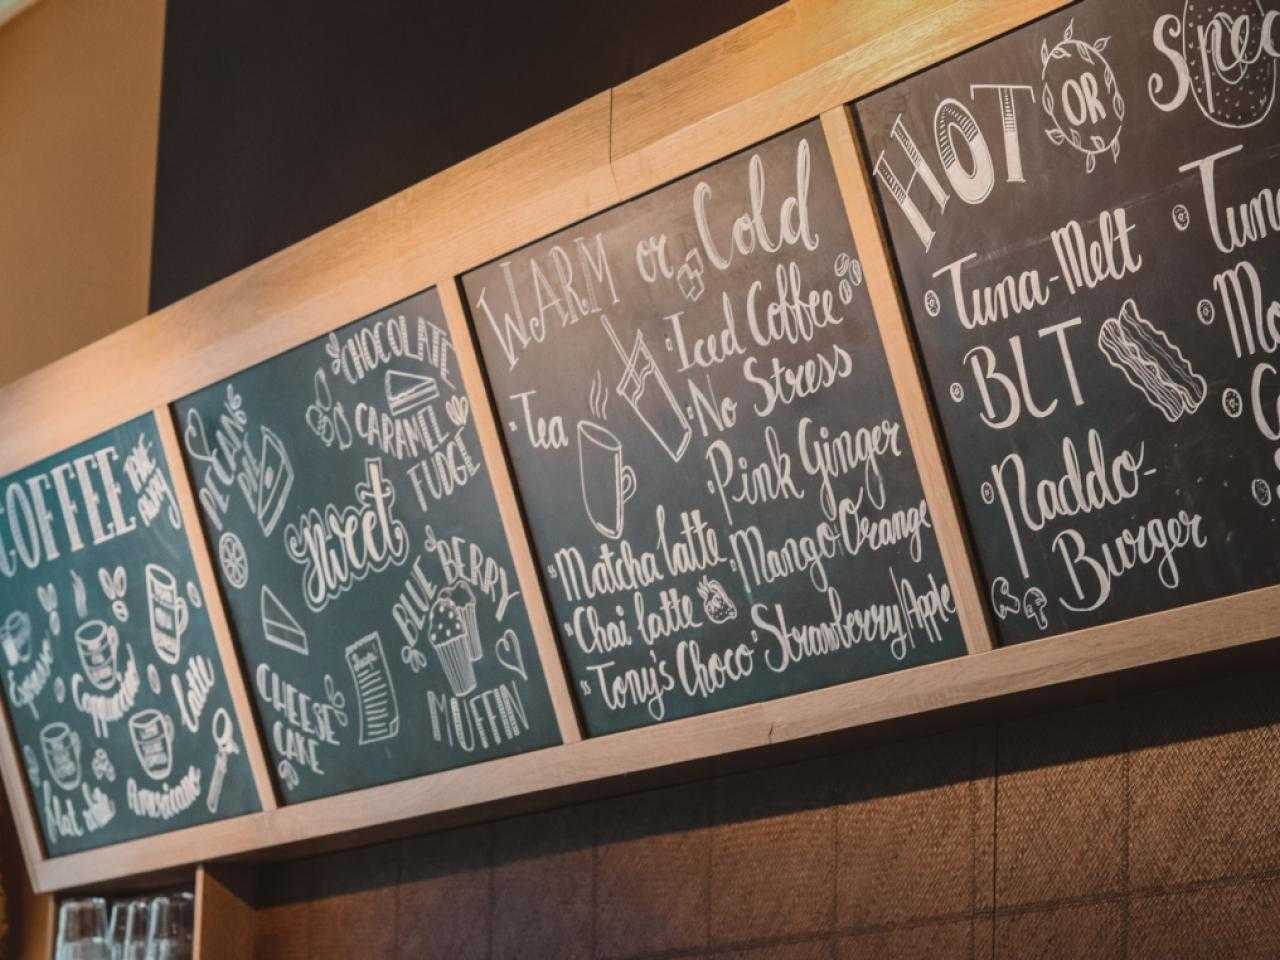 COFFEE TAKE AWAY
Cappuccino
Latte
Americano
PECAN PIE
CHOCOLATE
CARAMEL
FUDGE
Sweet
BLUE BERRY
MUFFIN
CHEESE
CAKE
WARM or Cold
Tea
Matcha latte
Chai latte
Tony's Choco
Iced Coffee
No Stress
Pink Ginger
Mango Orange
Strawberry/Apple
HOT OR Spec
Tuna-Melt
BLT
Paddo-
Burger
Tun
Mo